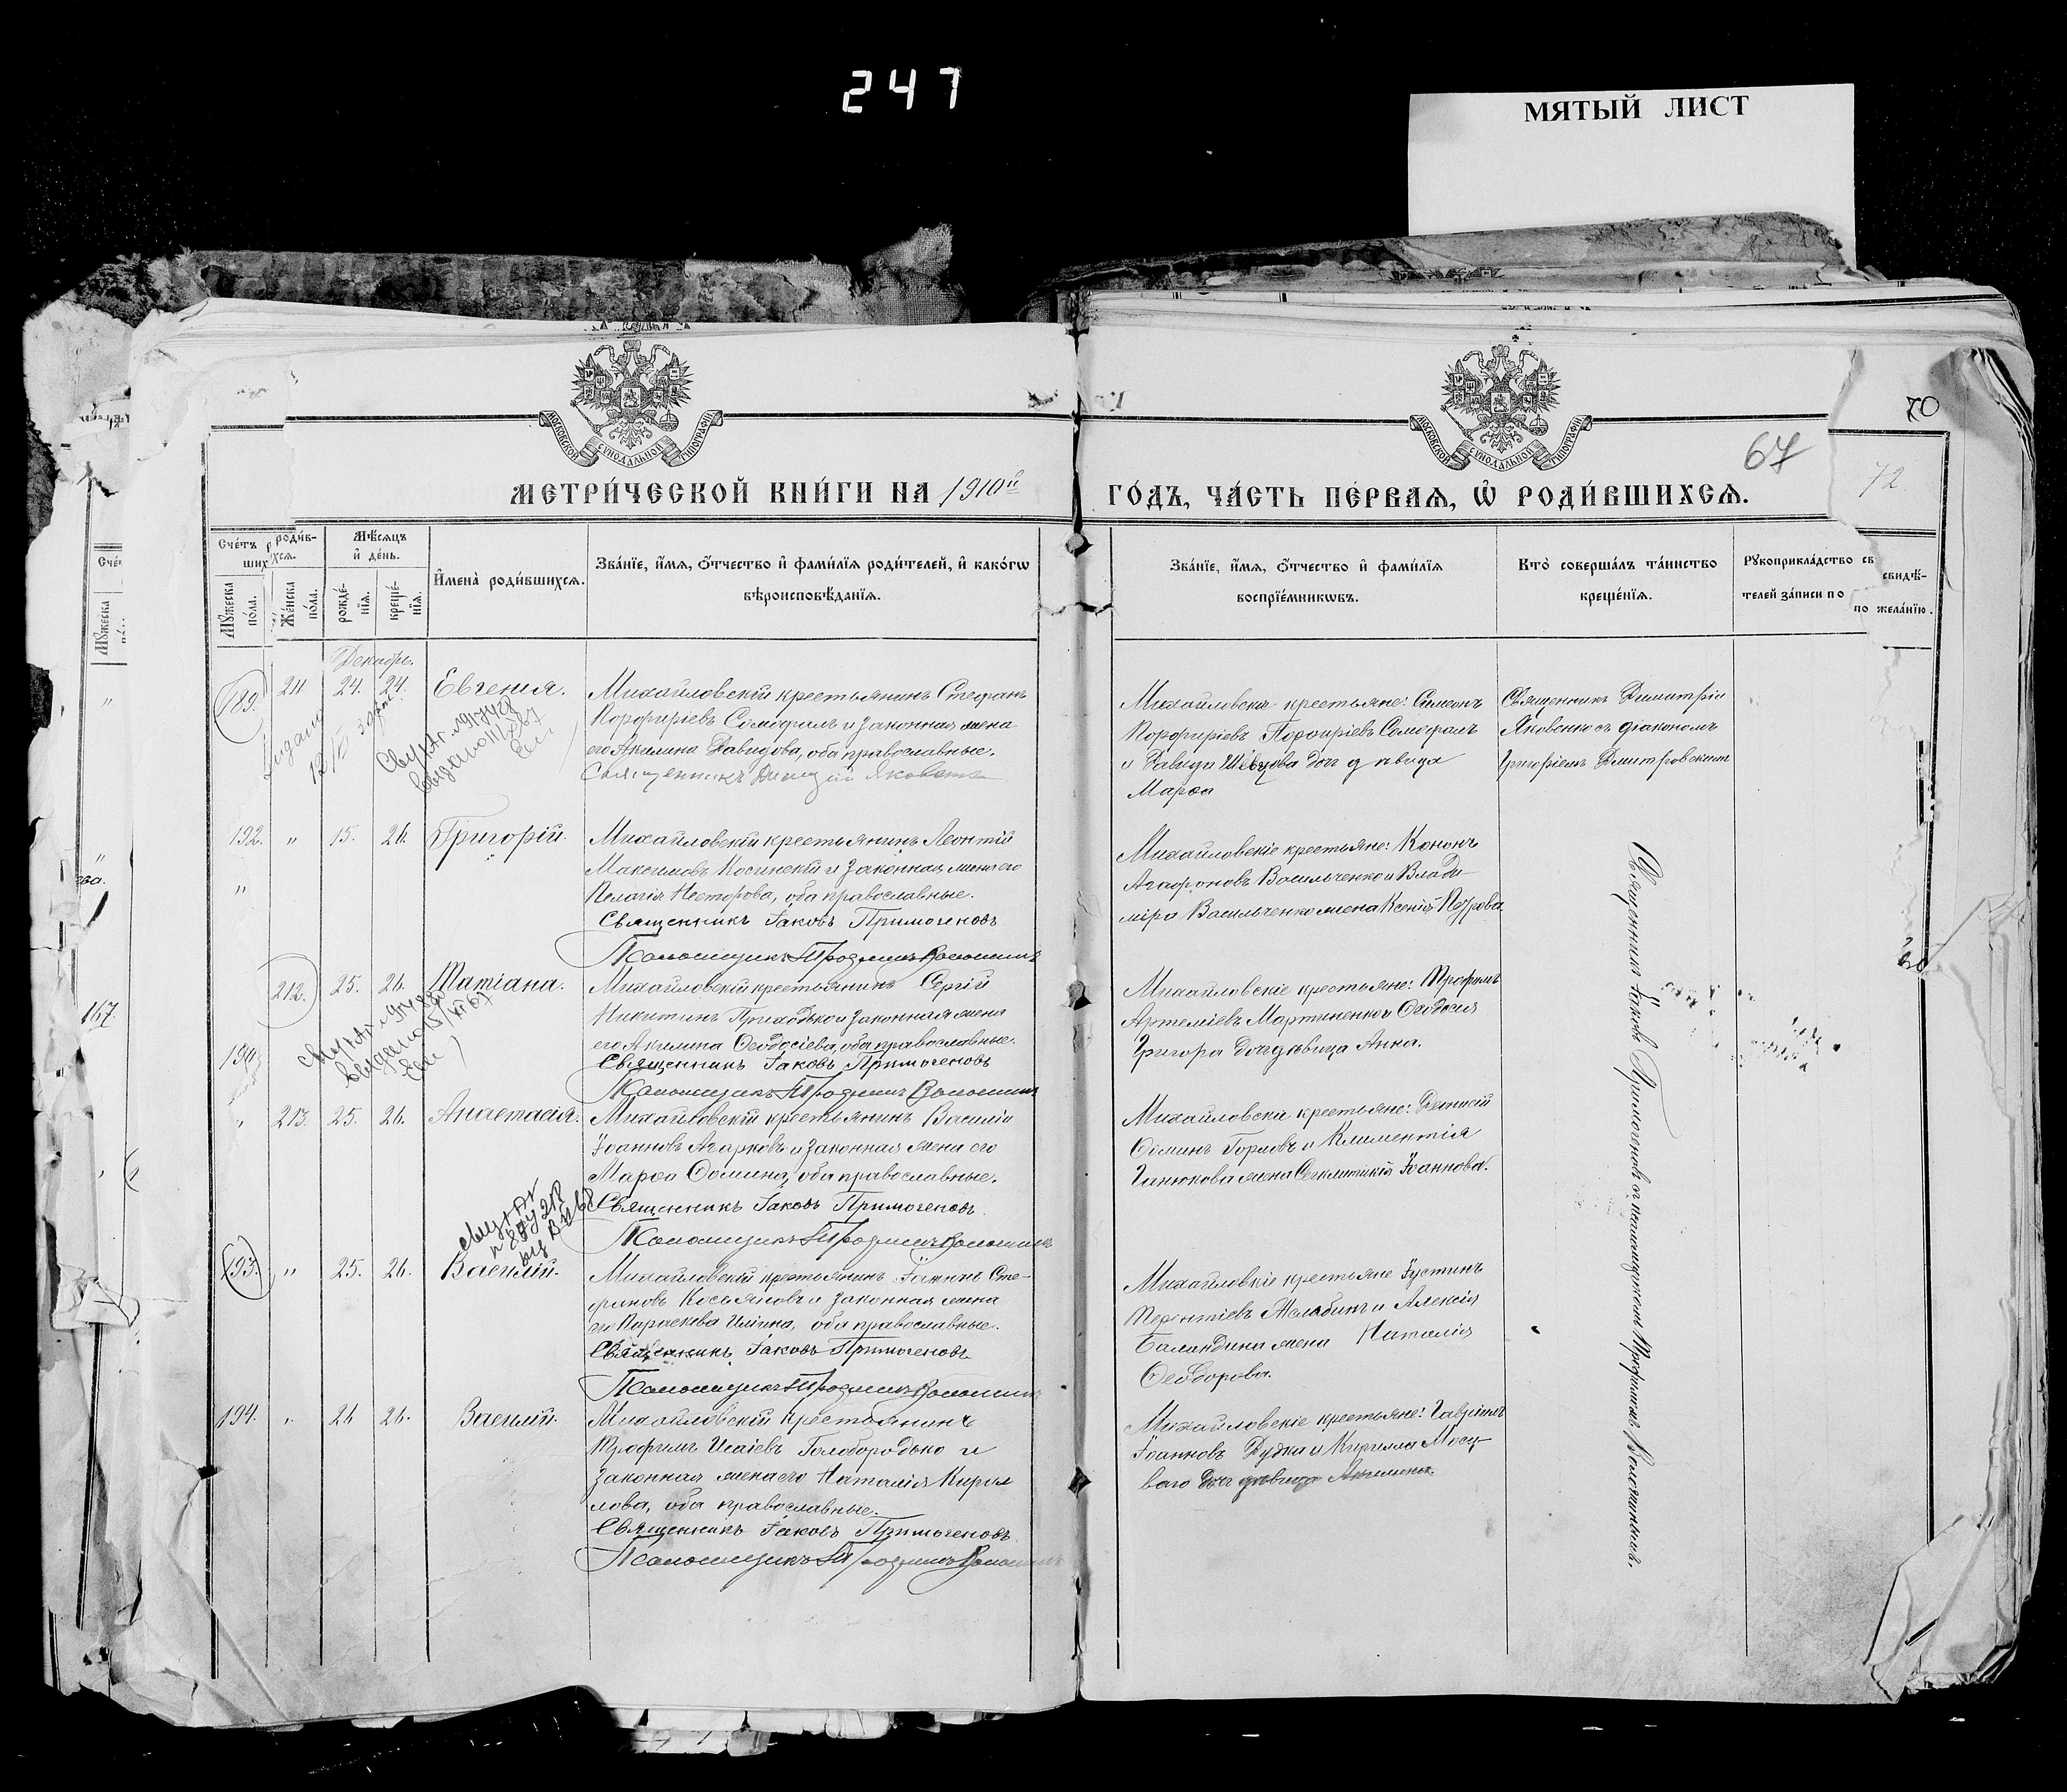 247
МЯТЫЙ ЛИСТ
МОСКОВСКОЙ СУНОДАЛЬНОЙ ТИПОГРАФІИ
МОСКОВСКОЙ СУНОДАЛЬНОЙ ТИПОГРАФІИ
70
67
72.
МЕТРИ́ЧЕСКОЙ КНИ́ГИ НА 1910й
ГО́ДЪ, ЧА́СТЬ ПЕ́РВАЯ, Ѡ҆ РОДИ́ВШИХСЯ.
Сче́тъ роди́в-
шихся.
Мꙋ́жеска по́ла.
Же́нска по́ла.
Мѣ́сяцъ
и҆ де́нь.
рожде́-
нїя.
креще́-
нїя.
И҆мена̀ роди́вшихся.
Зва́нїе, и҆́мя, ѻ҆́тчество и҆ фами́лїя роди́телей, и҆ како́гѡ
вѣроисповѣ́данїя.
Зва́нїе, и҆́мя, ѻ҆́тчество и҆ фами́лїя
воспрїе́мникѡвъ.
Кто̀ соверша́лъ та́инство
креще́нїя.
Рꙋкоприкла́дство св
свидѣ́-
телей за́писи по
по жела́нїю.
Декабрь.
189. 211 24. 24. Евгенія.
Михайловскій крестьянинъ Стефанъ
Порфиріевъ Соможралъ и законная жена
его Акилина Давидова, оба православные.
Священникъ Димитрій Яковенко
Михайловскія крестьяне: Симеонъ
Порфиріевъ
и Давида Шевцова дочь девица
Марѳа
Священникъ Димитрій
Яковенко съ діакономъ
Григоріемъ Дмитровскимъ
192. " 15. 26. Григорій.
Михайловскій крестьянинъ Леонтій
Максимовъ Косинскій и законная жена его
Пелагія Несторова, оба православные.
Священникъ Іаковъ Примогеновъ
Псаломщикъ Трофимъ Волошинъ
Михайловскіе крестьяне: Кононъ
Агаѳоновъ Васильченко и Влади-
міра Васильченко жена Ксенія Петрова
212. 25. 26. Татіана.
Михайловскій крестьянинъ Сергій
Никитинъ Приходько и законная жена
его Акилина Ѳеодосіева, оба православные.
Священникъ Іаковъ Примогеновъ
Псаломщикъ Трофимъ Волошинъ
Михайловскіе крестьяне: Трофимъ
Артеміевъ Мартиненко и Ѳеодосія
Григора дочь девица Анна.
190
213. 25. 26. Анастасія.
Михайловскій крестьянинъ Василій
Іоанновъ Агарковъ и законная жена его
Марѳа Ѳомина, оба православные.
Священникъ Іаковъ Примогеновъ
Псаломщикъ Трофимъ Волошинъ
Михайловскіе крестьяне: Діонисій
Ѳоминъ Горловъ и Климентія
Ганюкова жена Сегклитикія Іоаннова.
193. " 25. 26. Василій.
Михайловскій крестьянинъ Іоаннъ Сте-
фановъ Косьяновъ и законная жена
его Параскева Ильина, оба православные.
Священникъ Іаковъ Примогеновъ
Псаломщикъ Трофимъ Волошинъ
Михайловскіе крестьяне Іустинъ
Терентіевъ Желябинъ и Алексія
Баландина жена Наталія
Ѳеодорова.
194. 26 26. Василій.
Михайловскій крестьянинъ
Трофимъ Исаіевъ Голобородько и
законная жена его Наталія Кирил
лова, оба православные.
Священникъ Іаковъ Примогеновъ
Псаломщикъ Трофимъ Волошинъ
Михайловскіе крестьяне: Гавріилъ
Іоанновъ Дудка и Кирилла Мосц-
ваго дочь девица Акилина.
Священникъ Іаковъ Примогеновъ съ псаломщикомъ Трофимомъ Волошинымъ.
167.